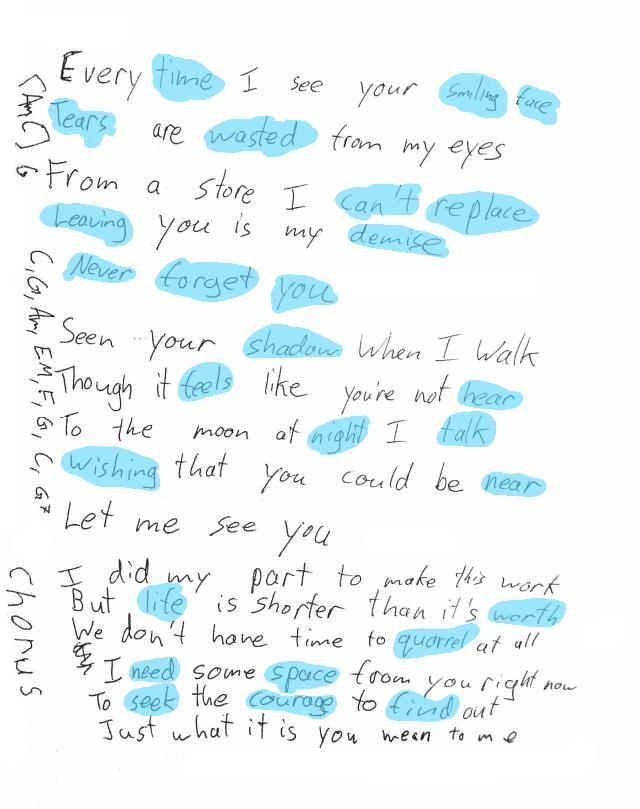 Every time I see your smiling face
Tears are wasted from my eyes
From a store I can't replace
Leaving you is my demise
Never forget you
Seen your shadow when I walk
Though it feels like you're not hear
To the moon at night I talk
Wishing that you could be near
Let me see you
I did my part to make this work
But life is shorter than it's worth
We don't have time to quarrel at all
I need some space from you right now
To seek the courage to find out
Just what it is you mean to me
[AmC] G
C, G, Am, EM, F, G, C, G*
Chorus